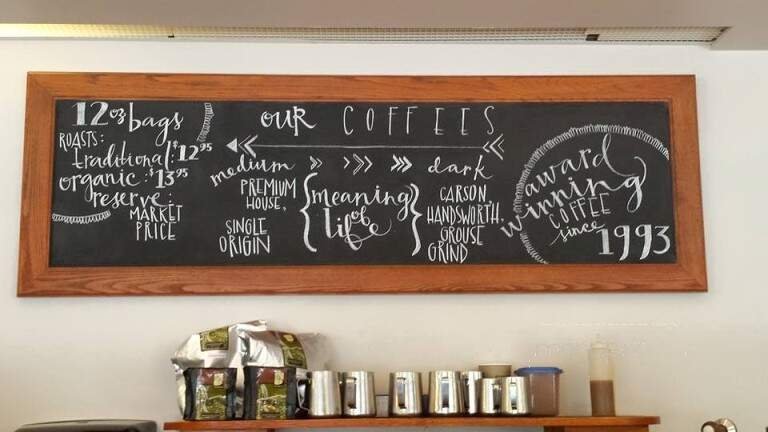 12oz bags
ROASTS:
traditional: $12.95
organic: $13.95
reserve:
MARKET
PRICE
our COFFEES
medium
dark
PREMIUM
HOUSE,
SINGLE
ORIGIN
{meaning
of
life}
CARSON,
HANDSWORTH,
GROUSE
GRIND
award
winning
COFFEE
since
1993